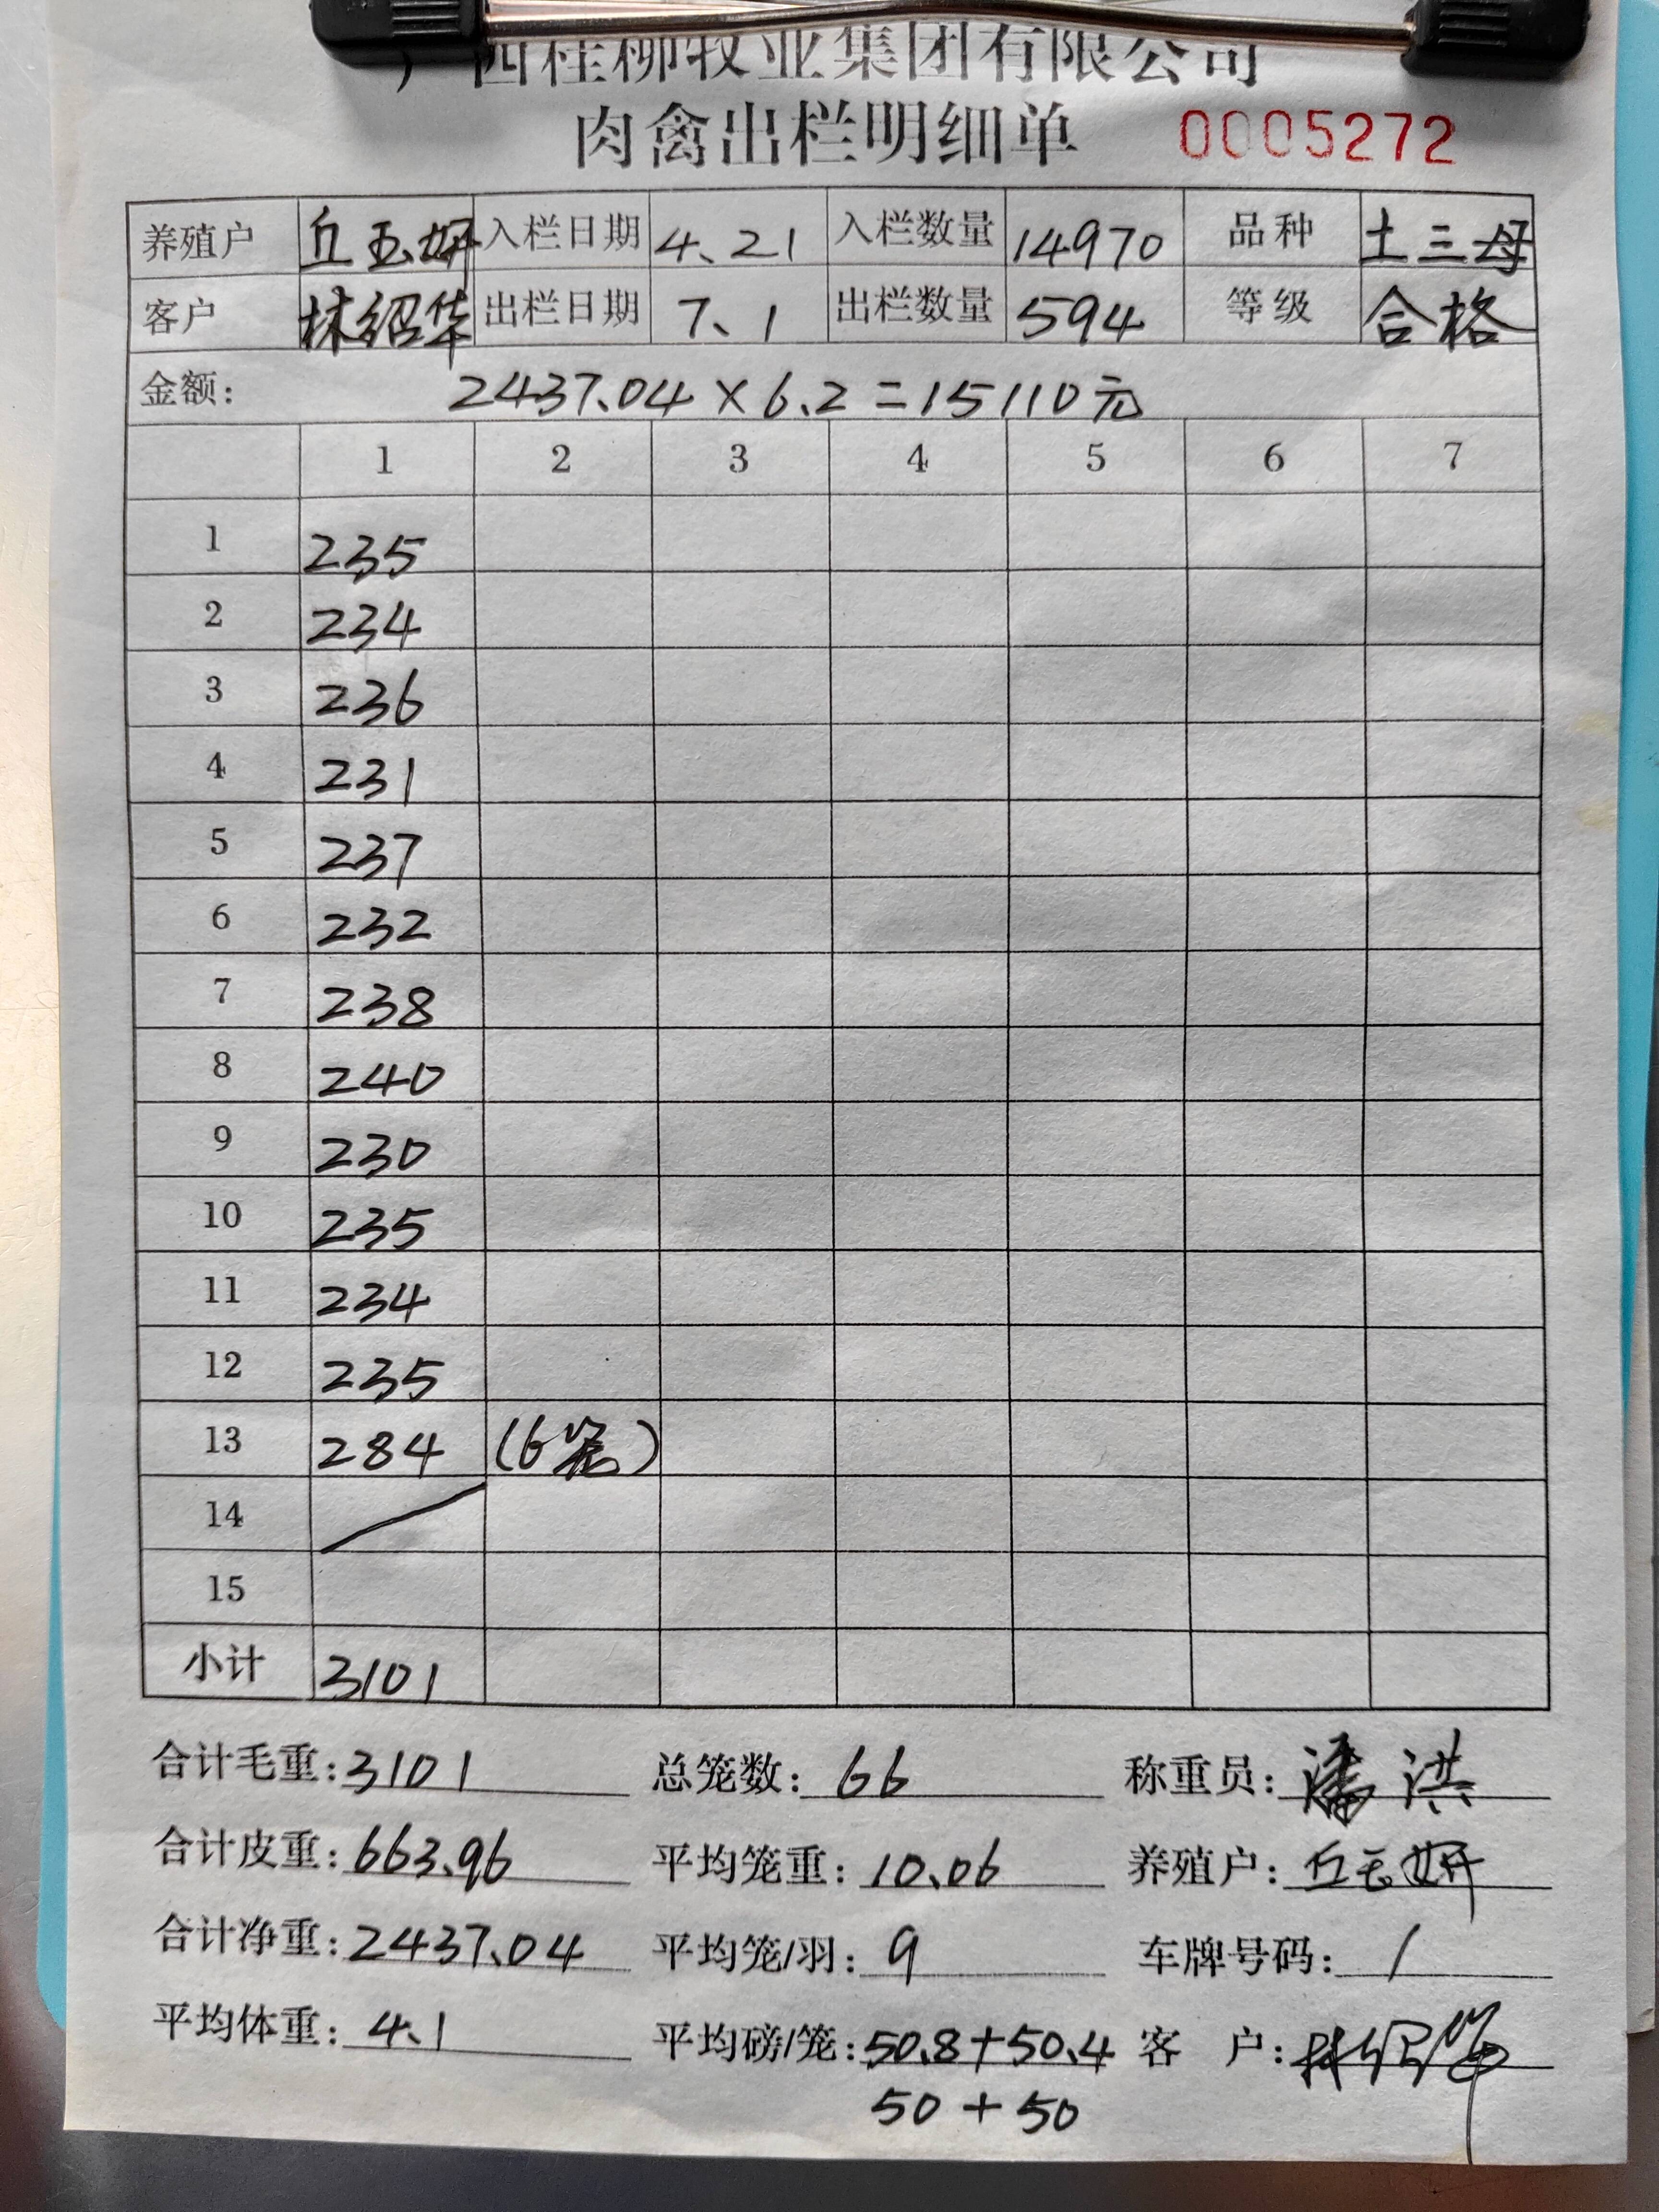 广西桂柳牧业集团有限公司
肉禽出栏明细单 0005272
养殖户 丘玉妍 入栏日期 4.21 入栏数量 14970 品种 土三母
客户 林绍华 出栏日期 7.1 出栏数量 594 等级 合格
金额: 2437.04×6.2=15110元
1 2 3 4 5 6 7
1 235
2 234
3 236
4 231
5 237
6 232
7 238
8 240
9 230
10 235
11 234
12 235
13 284 (6笼)
14
15
小计 3101
合计毛重:3101 总笼数:66 称重员:潘洪
合计皮重:663.96 平均笼重:10.06 养殖户:丘玉妍
合计净重:2437.04 平均笼/羽:9 车牌号码:/
平均体重:4.1 平均磅/笼:50.8+50.4 客 户:林绍华
50+50